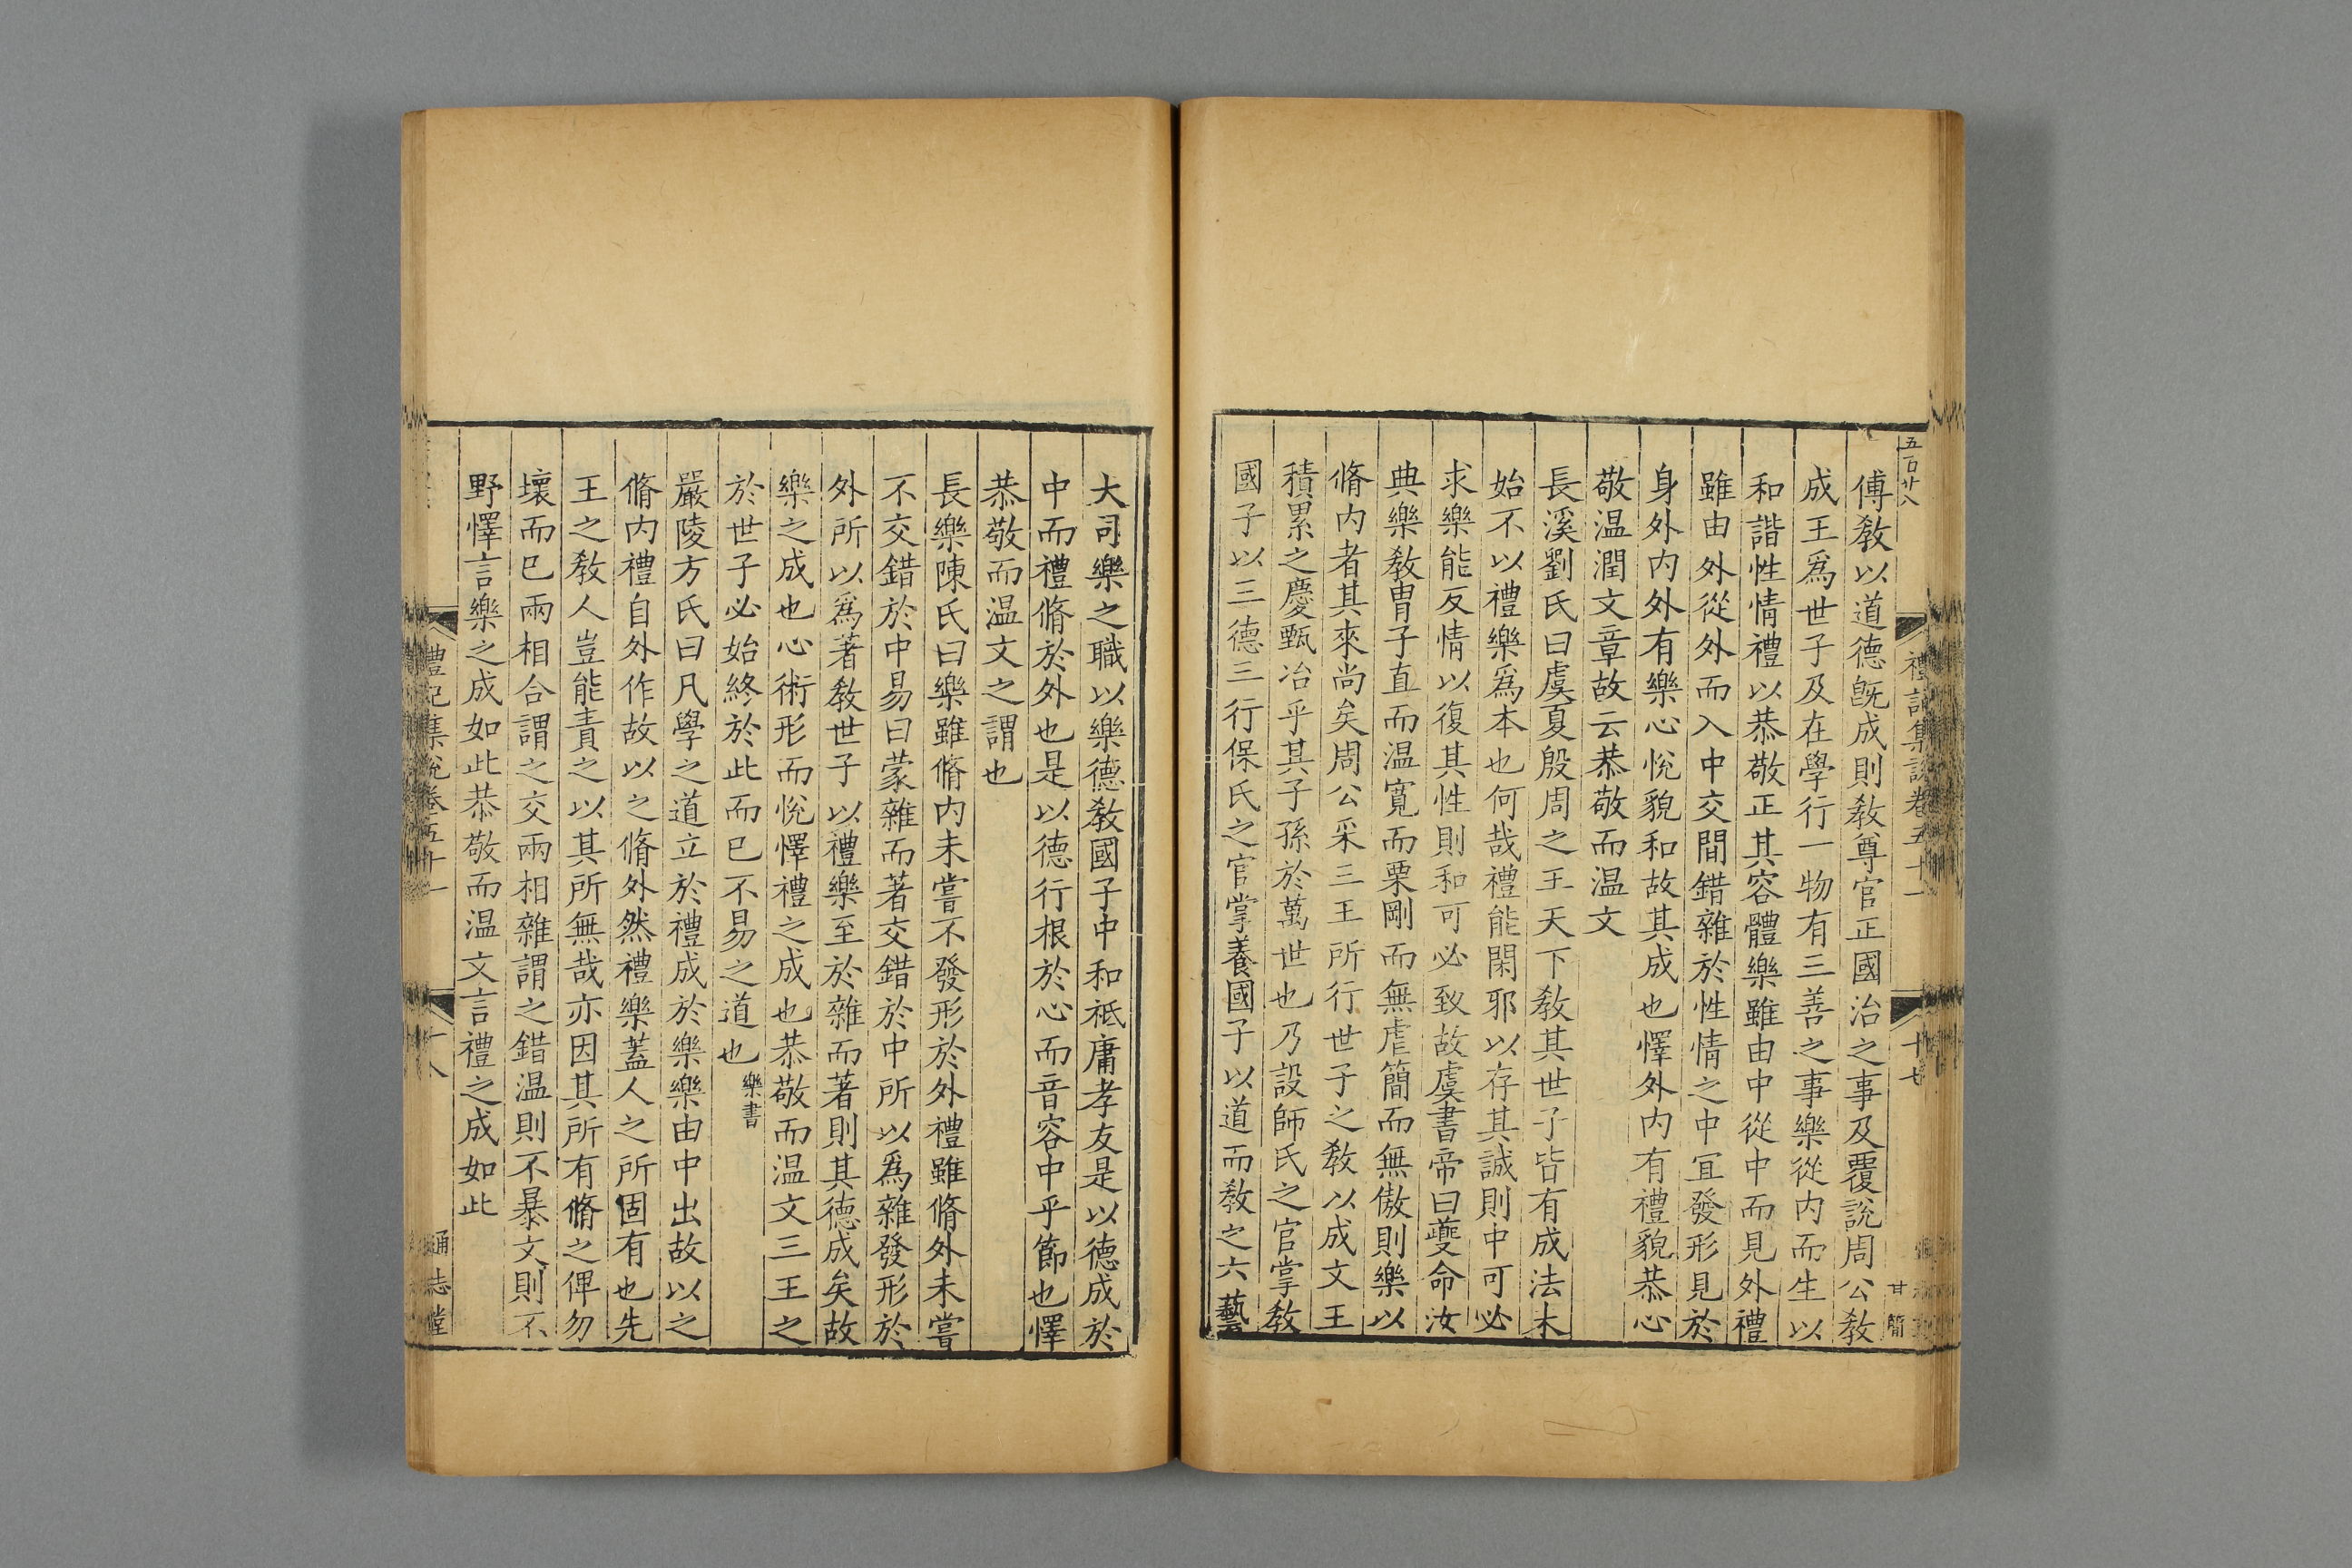 五百廿八
禮記集說卷五十一
十七
甘簡
傅敎以道德旣成則敎尊官正國治之事及覆說周公敎
成王爲世子及在學行一物有三善之事樂從内而生以
和諧性情禮以恭敬正其容體樂雖由中從中而見外禮
雖由外從外而入中交間錯雜於性情之中宜發形見於
身外内外有樂心悅貌和故其成也懌外内有禮貌恭心
敬温潤文章故云恭敬而温文
長溪劉氏曰虞夏殷周之王天下敎其世子皆有成法未
始不以禮樂爲本也何哉禮能閑邪以存其誠則中可必
求樂能反情以復其性則和可必致故虞書帝曰夔命汝
典樂敎胄子直而温寬而栗剛而無虐簡而無傲則樂以
脩内者其來尚矣周公采三王所行世子之敎以成文王
積累之慶甄冶乎其子孫於萬世也乃設師氏之官掌敎
國子以三德三行保氏之官掌養國子以道而敎之六藝
大司樂之職以樂德敎國子中和祗庸孝友是以德成於
中而禮脩於外也是以德行根於心而音容中乎節也懌
恭敬而温文之謂也
長樂陳氏曰樂雖脩内未嘗不發形於外禮雖脩外未嘗
不交錯於中易曰蒙雜而著交錯於中所以爲雜發形於
外所以爲著敎世子以禮樂至於雜而著則其德成矣故
樂之成也心術形而悅懌禮之成也恭敬而温文三王之
於世子必始終於此而已不易之道也樂書
嚴陵方氏曰凡學之道立於禮成於樂樂由中出故以之
脩内禮自外作故以之脩外然禮樂蓋人之所固有也先
王之敎人豈能責之以其所無哉亦因其所有脩之俾勿
壞而已兩相合謂之交兩相雜謂之錯温則不暴文則不
野懌言樂之成如此恭敬而温文言禮之成如此
禮記集說卷五十一
十八
通志堂